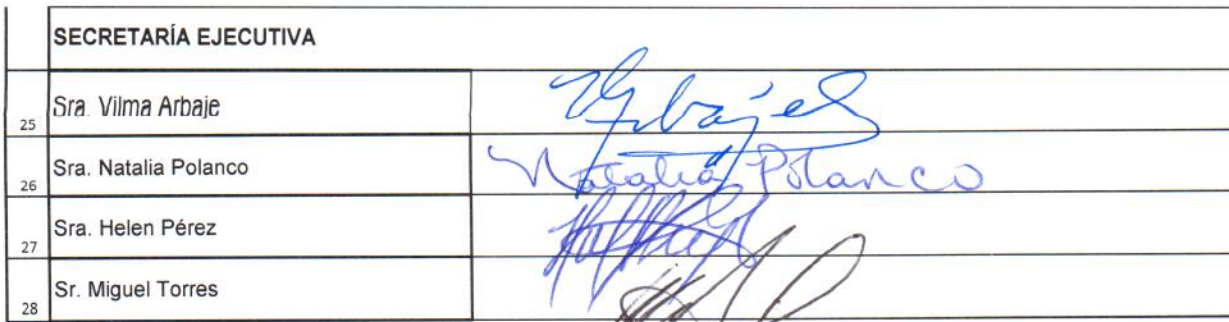 SECRETARÍA EJECUTIVA
25 Sra. Vilma Arbaje VArbaje
26 Sra. Natalia Polanco Natalia Polanco
27 Sra. Helen Pérez
28 Sr. Miguel Torres